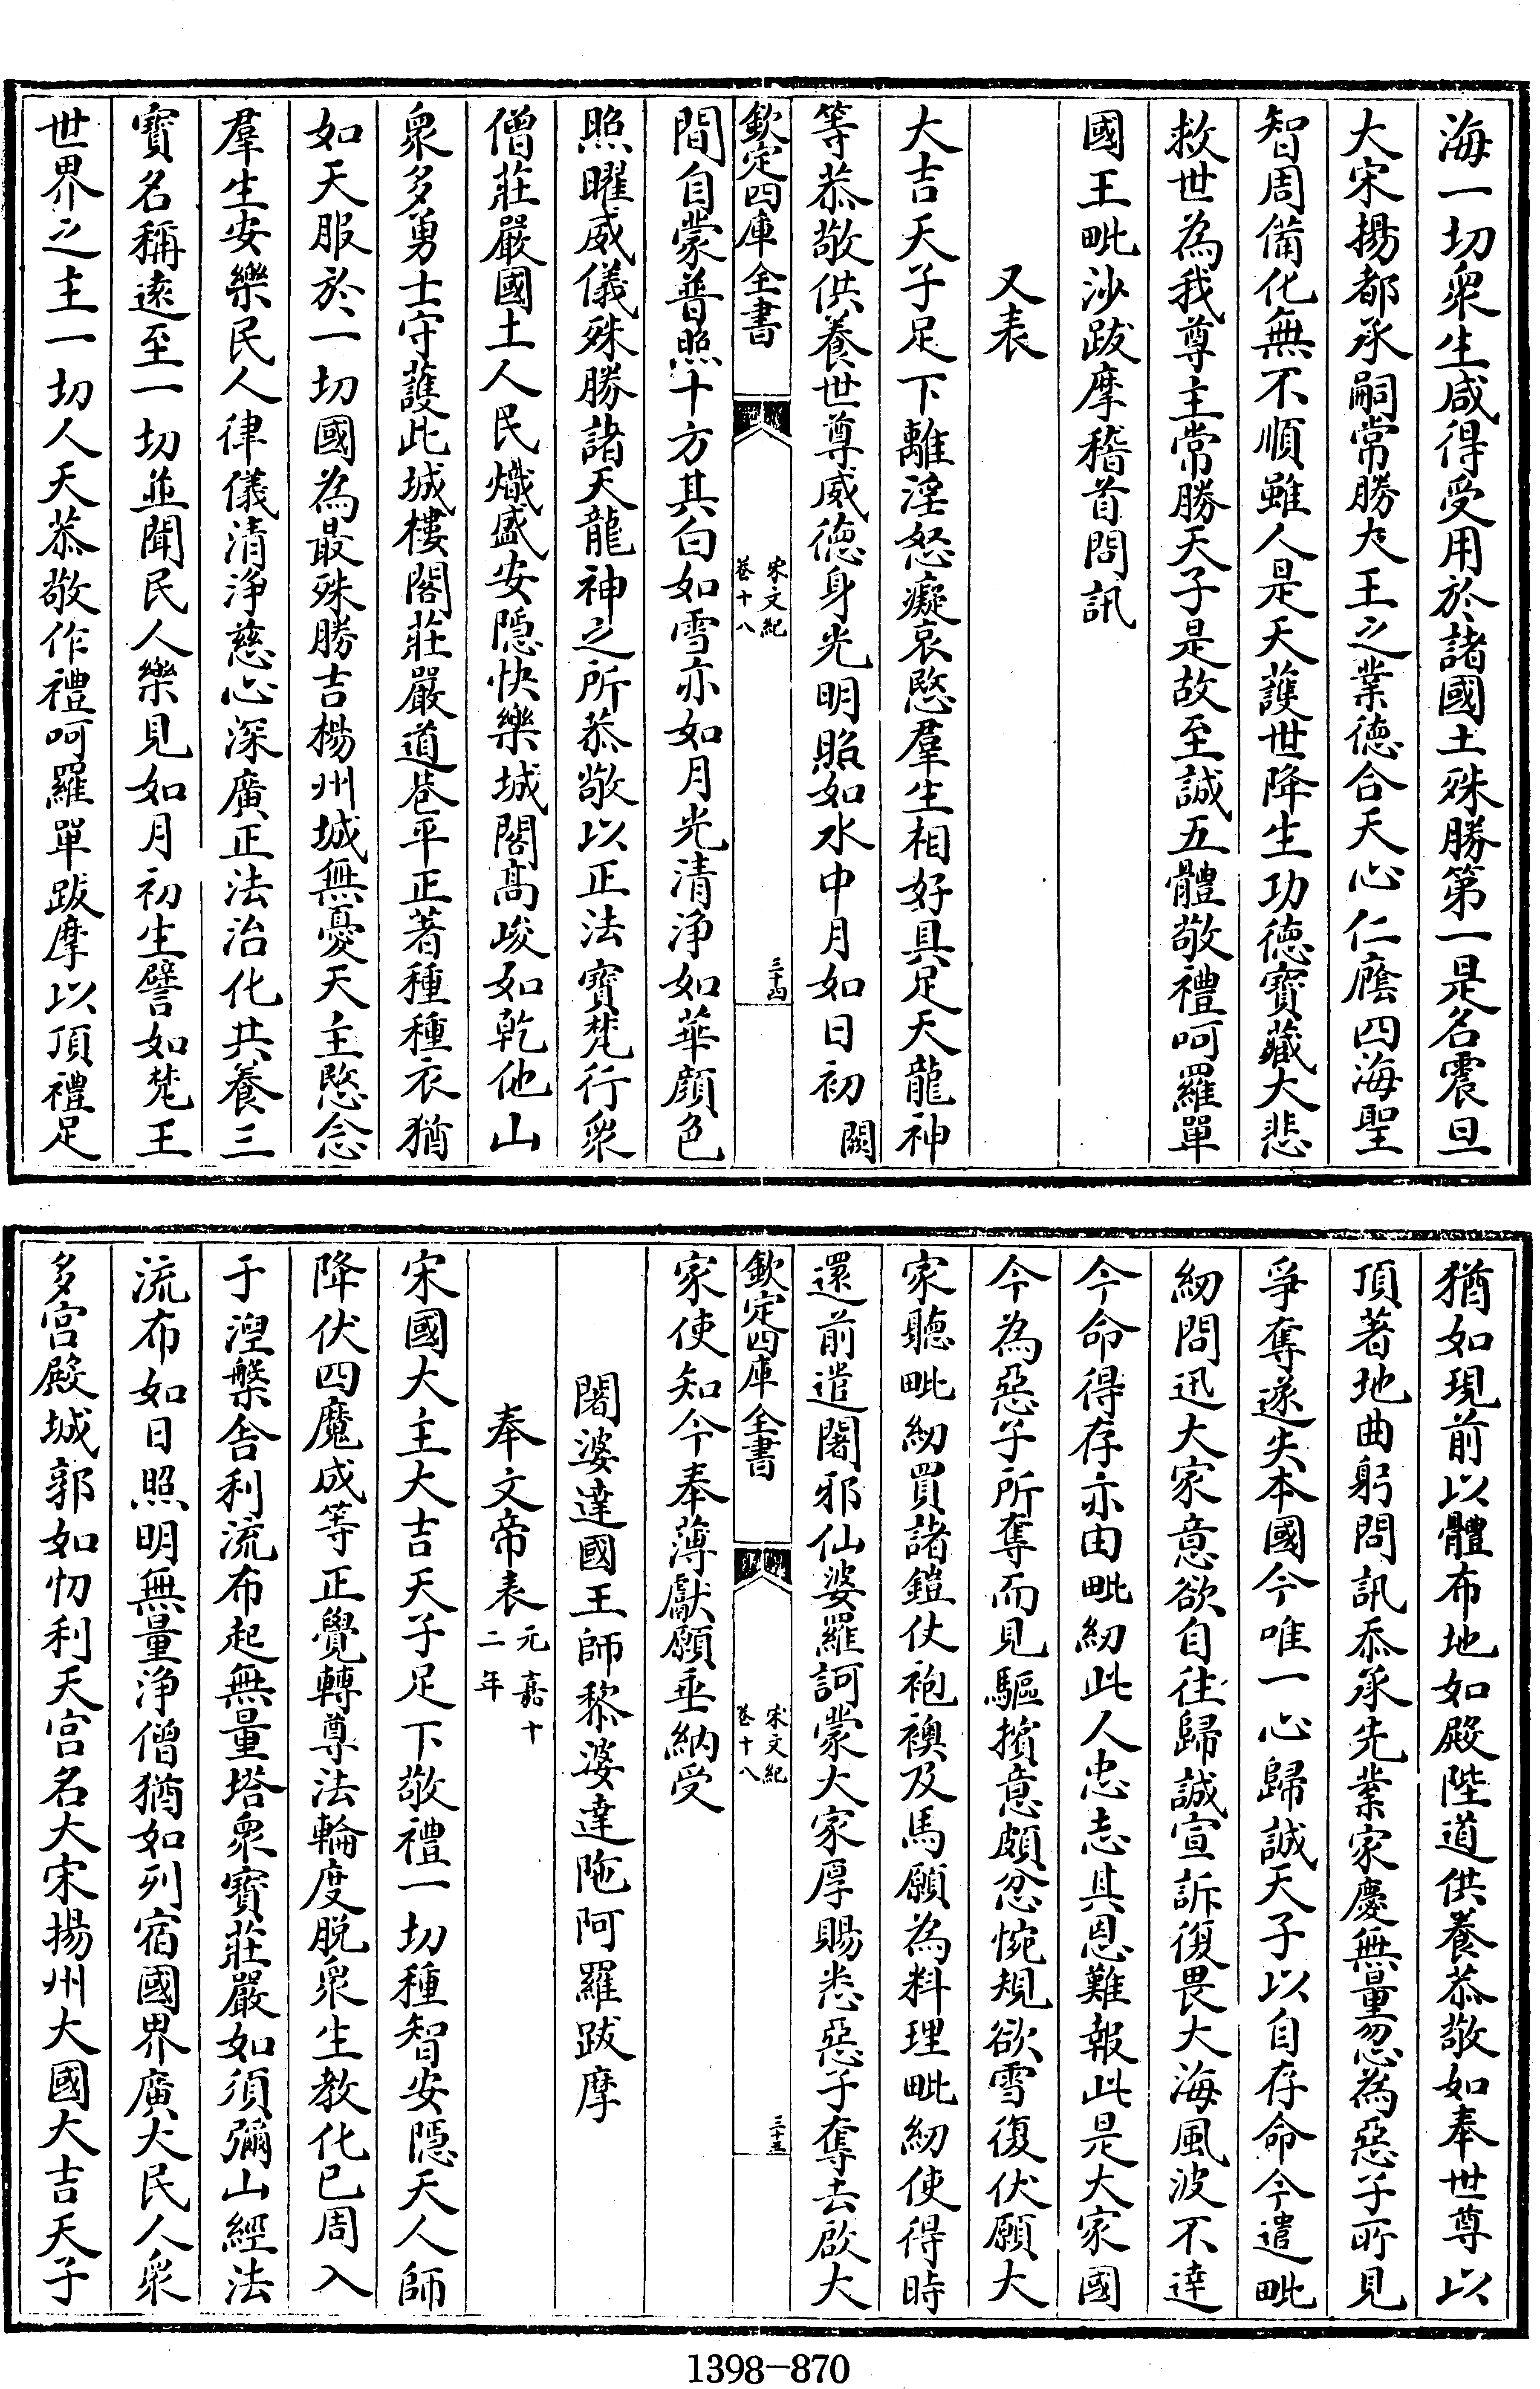 海一切衆生咸得受用於諸國土殊勝第一是名震旦
大宋揚都承嗣常勝大王之業德合天心仁廕四海聖
智周備化無不順雖人是天護世降生功德寶藏大悲
救世為我尊主常勝天子是故至誠五體敬禮呵羅單
國王毗沙跋摩稽首問訊
又表
大吉天子足下離淫怒癡哀愍羣生相好具足天龍神
等恭敬供養世尊威德身光明照如水中月如日初闕
欽定四庫全書
宋文紀
卷十八
三十四
間自蒙普照十方其白如雪亦如月光清淨如華顔色
照曜威儀殊勝諸天龍神之所恭敬以正法寶梵行衆
僧莊嚴國土人民熾盛安隠快樂城閣髙峻如乾他山
衆多勇士守護此城樓閣莊嚴道巷平正著種種衣猶
如天服於一切國為最殊勝吉楊州城無憂天主愍念
羣生安樂民人律儀清淨慈心深廣正法治化共養三
寶名稱逺至一切並聞民人樂見如月初生譬如梵王
世界之主一切人天恭敬作禮呵羅單跋摩以頂禮足
猶如現前以體布地如殿陛道供養恭敬如奉世尊以
頂著地曲躬問訊忝承先業家慶無量忽為惡子所見
爭奪遂失本國今唯一心歸誠天子以自存命今遣毗
紉問迅大家意欲自往歸誠宣訴復畏大海風波不達
今命得存亦由毗紉此人忠志其恩難報此是大家國
今為惡子所奪而見驅擯意頗忿惋規欲雪復伏願大
家聽毗紉買諸鎧仗袍襖及馬願為料理毗紉使得時
還前遣闍邪仙婆羅訶蒙大家厚賜悉惡子奪去啟大
欽定四庫全書
宋文紀
卷十八
三十五
家使知今奉薄獻願垂納受
闍婆達國王師黎婆達陁阿羅跋摩
奉文帝表元嘉十二年
宋國大主大吉天子足下敬禮一切種智安隠天人師
降伏四魔成等正覺轉尊法輪度脱衆生教化已周入
于湼槃舍利流布起無量塔衆寶莊嚴如須彌山經法
流布如日照明無量淨僧猶如列宿國界廣大民人衆
多宫殿城郭如忉利天宫名大宋揚州大國大吉天子
1398-870